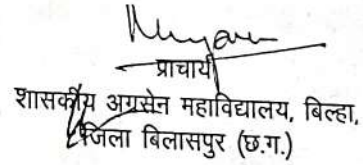 प्राचार्य
शासकीय अग्रसेन महाविद्यालय, बिल्हा,
जिला बिलासपुर (छ.ग.)